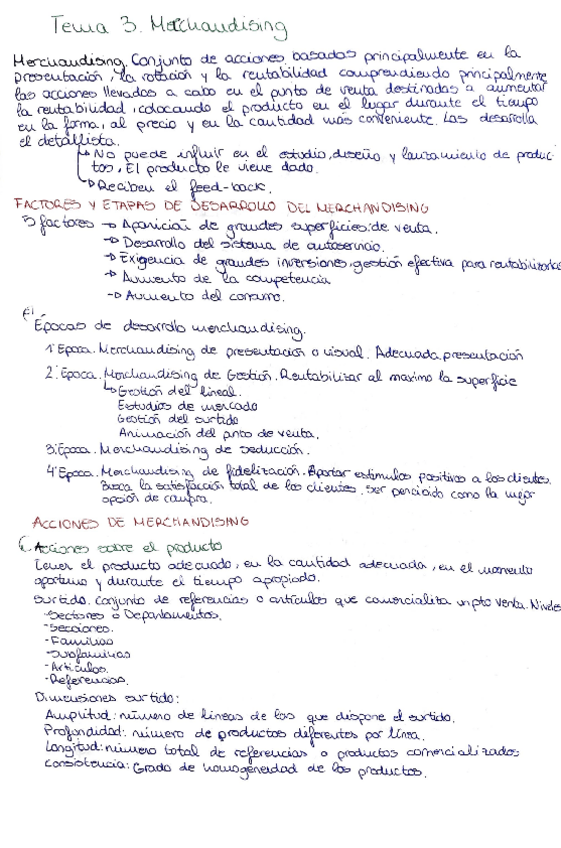 Tema 3. Merchandising
Merchandising. Conjunto de acciones basadas principalmente en la
presentación, la rotación y la rentabilidad comprendiendo principalmente
las acciones llevadas a cabo en el punto de venta destinadas a aumentar
la rentabilidad, colocando el producto en el lugar durante el tiempo
en la forma, al precio y en la cantidad más conveniente. Las desarrolla
el detallista.
↳ No puede influir en el estudio, diseño y lanzamiento de produc-
tos, El producto le viene dado.
↳ Reciben el feed-back.
FACTORES Y ETAPAS DE DESARROLLO DEL MERCHANDISING
5 factores → Aparición de grandes superficies de venta.
→ Desarrollo del sistema de autoservicio.
→ Exigencia de grandes inversiones, gestión efectiva para rentabilizarlas
→ Aumento de la competencia
→ Aumento del consumo.
El
Épocas de desarrollo merchandising.
1ª Época. Merchandising de presentación o visual. Adecuada presentación
2ª Época. Merchandising de Gestión. Rentabilizar al maximo la superficie
↳ Gestión del lineal.
Estudios de mercado
Gestión del surtido
Animación del pnto de venta.
3ª Época. Merchandising de seducción.
4ª Época. Merchandising de fidelización. Aportar estimulos positivos a los clientes.
Busca la satisfacción total de los clientes. Ser percibido como la mejor
opción de compra.
ACCIONES DE MERCHANDISING
Acciones sobre el producto
Tener el producto adecuado, en la cantidad adecuada, en el momento
oportuno y durante el tiempo apropiado.
Surtido. Conjunto de referencias o artículos que comercializa un pto venta. Niveles
-Sectores o Departamentos.
-Secciones.
-Familias
-Subfamilias
-Artículos.
-Referencias.
Dimensiones surtido:
Amplitud: número de lineas de las que dispone el surtido.
Profundidad: número de productos diferentes por línea.
Longitud: número total de referencias o productos comercializados
Consistencia: Grado de homogeneidad de los productos.